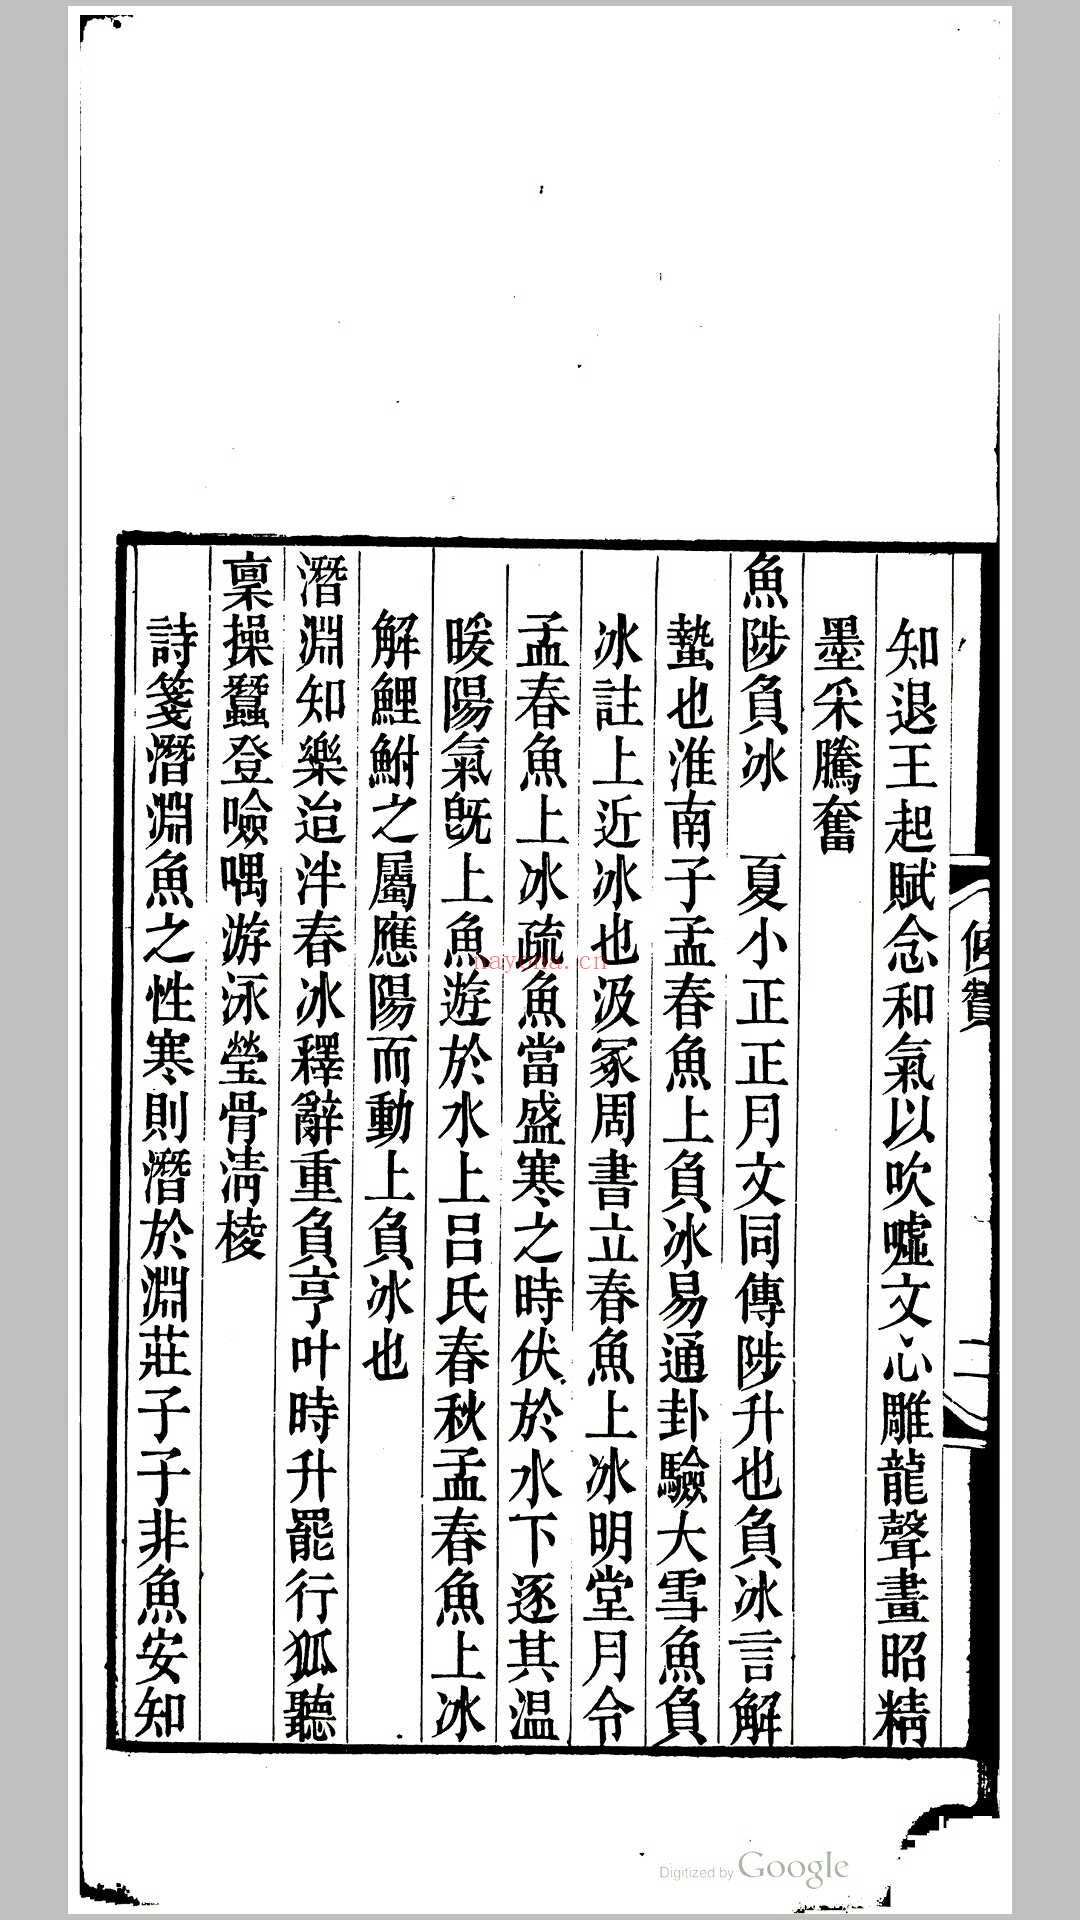 知退王起賦念和氣以吹噓文心雕龍聲畫昭精
墨采騰奮
魚陟負冰　夏小正正月文同傳陟升也負冰言解
蟄也淮南子孟春魚上負冰易通卦驗大雪魚負
冰註上近冰也汲冢周書立春魚上冰明堂月令
孟春魚上冰疏魚當盛寒之時伏於水下逐其温
暖陽氣旣上魚遊於水上呂氏春秋孟春魚上冰
解鯉鮒之屬應陽而動上負冰也
潛淵知樂迨泮春冰釋辭重負亨叶時升罷行狐聽
稟操蠶登噞喁游泳瑩骨淸棱
詩箋潛淵魚之性寒則潛於淵莊子子非魚安知
二
nayona.cn
Digitized by Google